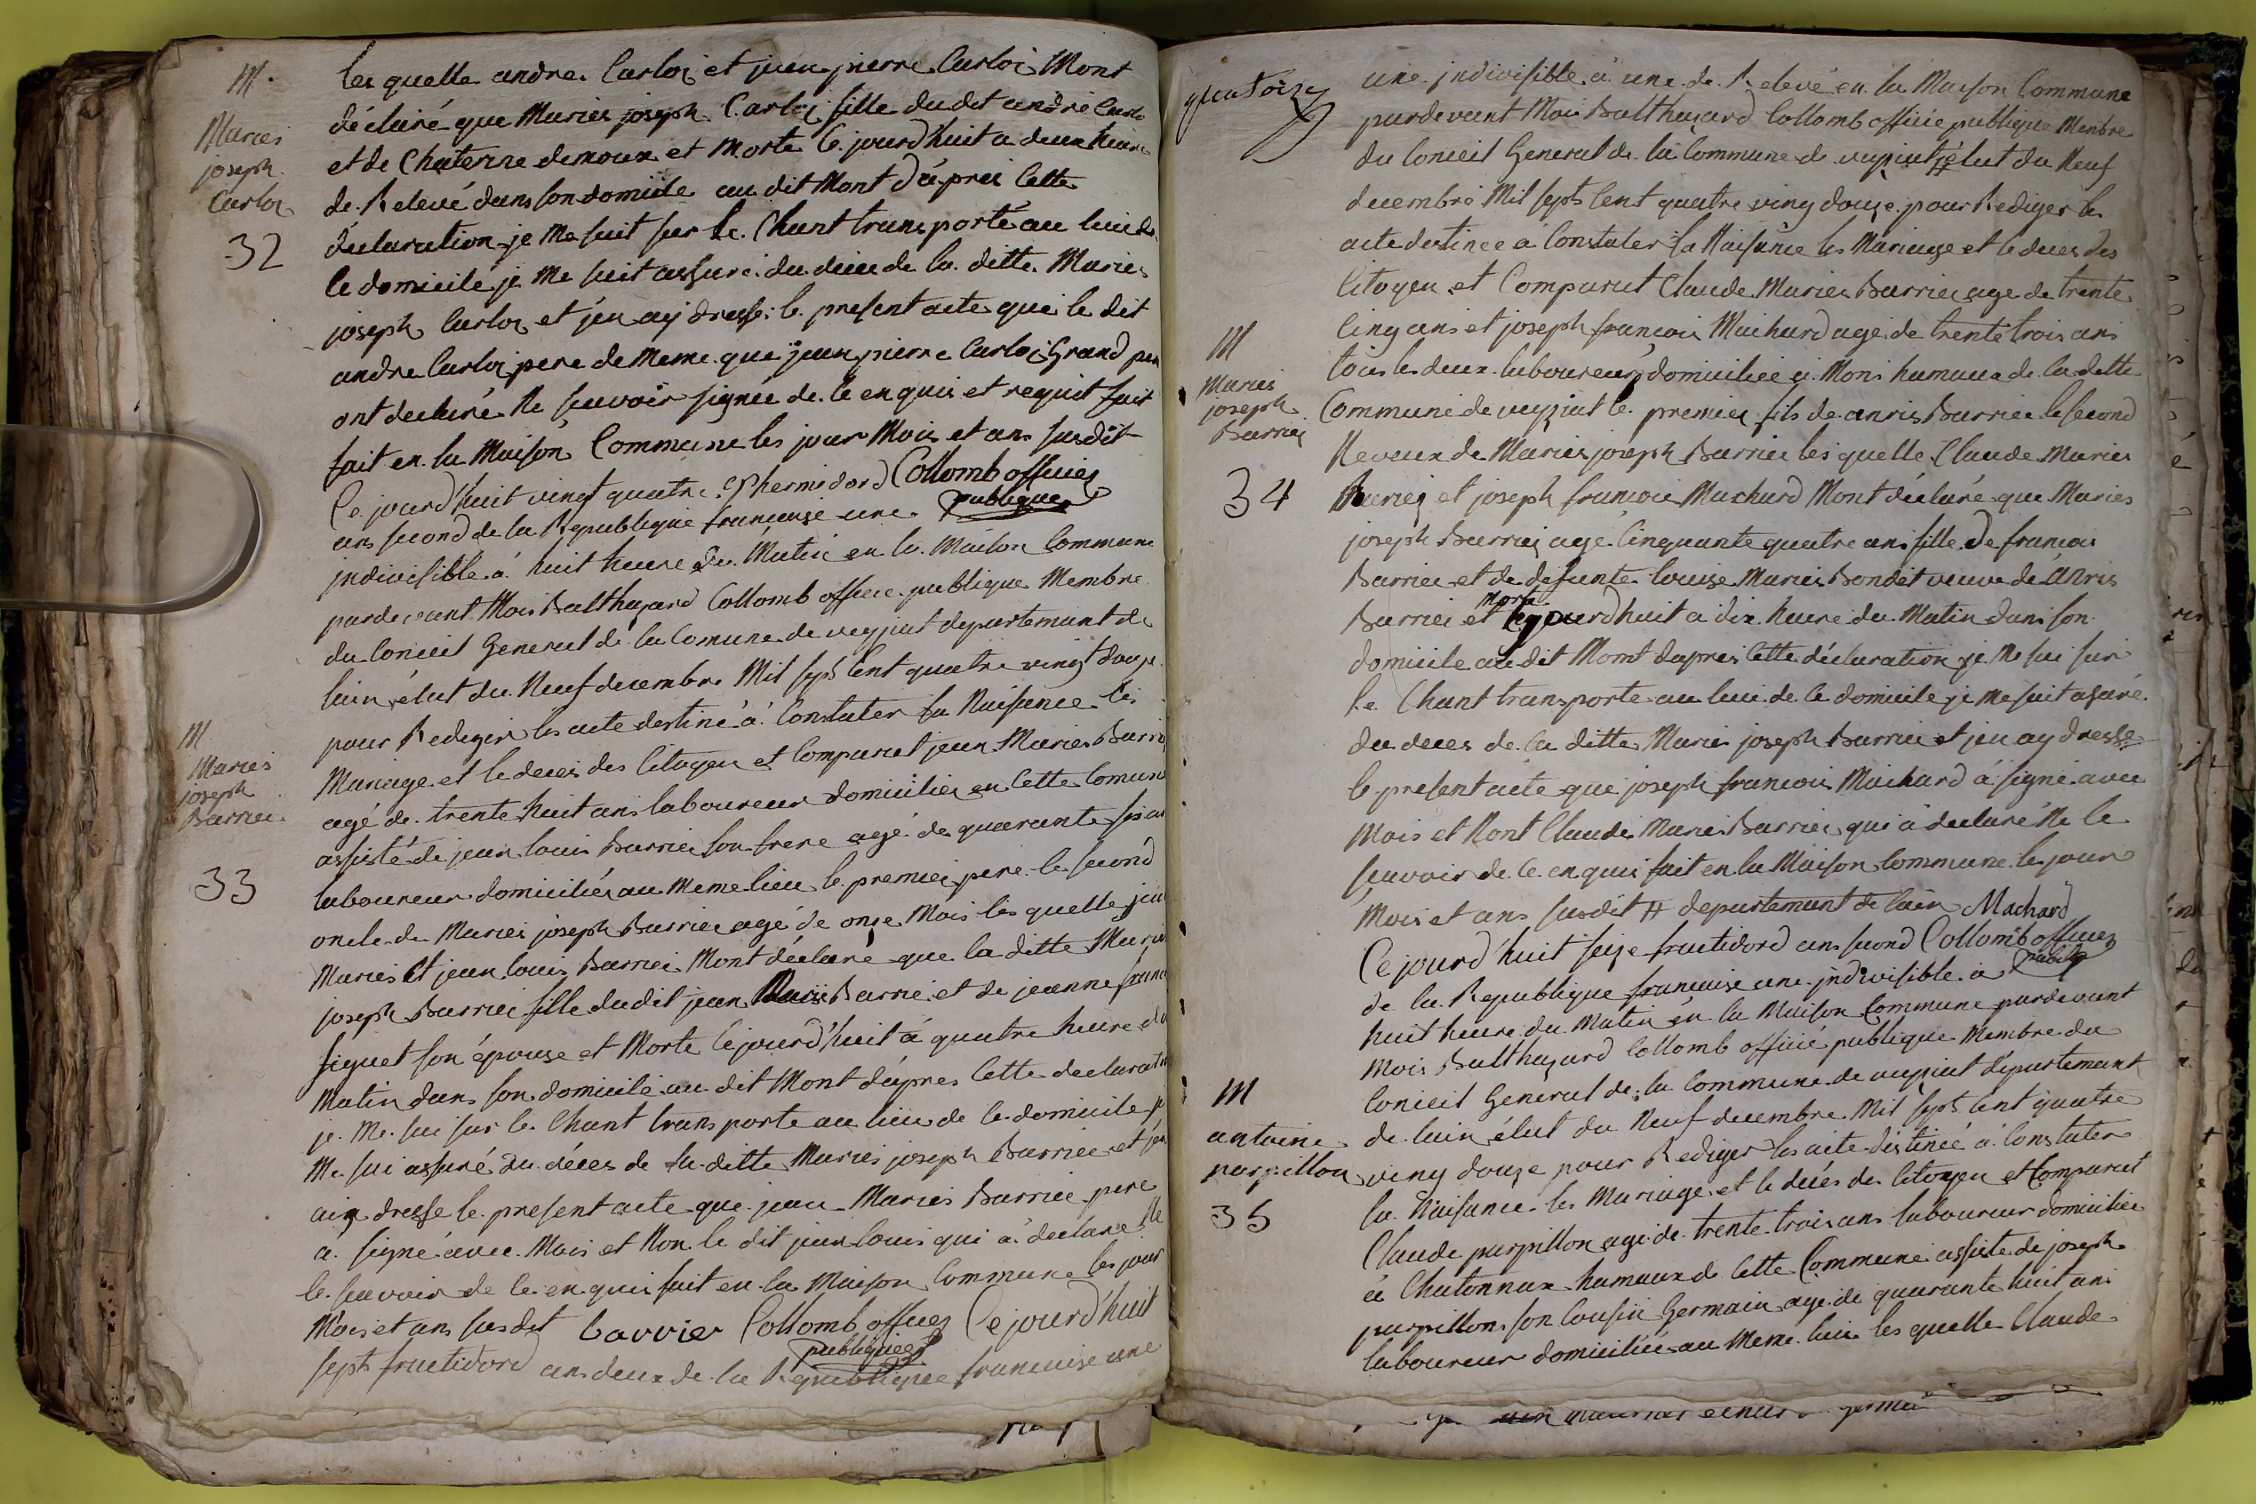 M.
Maries
joseph
Carloz
32
les quelle andre Carloz et jean pierre Carloz Mont
déclaré que Maries joseph Carloz fille du dit andré Carlo
et de Chaterine demoux et Morte Ce jourd'huit a deux heure
de Relevé dans son domicile au dit Mont d'áprei Cette
declaration je Me suit sur le Chant transporté au lieu de
Ce domicile je Me suit assuré du deces de la ditte Maries
joseph Carloz et jen aÿ dressé le present acte que le dit
andre Carloz pere de Meme que jean pierre Carloz Grand per
ont declaré Ne scavoir signée de Ce enquis et requit fait
fait en la Maison Commune les jour Mois et ans susdit
Ce jourd'huit vingt quatre Thermidord Collomb officiez
publique
ans second de la Republique française une
jndivisible á huit heure du Matin en la Maison Commune
pardevant Moi Balthazard Collomb officie publique Membre
du Conseil General de la Comune de veyziat departement de
lain élut du Neuf decembre Mil sept Cent quatre vingt douze
M
Maries
joseph
Barriei
33
pour Redigir les acte destiné á Constater la Naisance les
Mariage et le deces des Citoyen et Comparut jean Maries Barrie
agé de trente huit ans laboureur domicilies en Cette Comune
assisté de jean louis Barriei son frere agé de quarante sis an
laboureur domiciliéz au Meme lieu le premier pere le second
oncle de Maries joseph Barriei agé de onze Mois les quelle jean
Maries Et jean louis Barriei Mont déclaré que la ditte Maries
joseph Barriei fille du dit jean Maries Barriei et de jeanne franc
figuet son épouse et Morte Cejourd'huit á quatre heure du
Matin dans son domicile au dit Mont d'apres Cette declaration
je Me sui sur le Chant transporte au lieu de Ce domicile je
Me sui assuré du déces de la ditte Maries joseph Barriei et jen
aiy dresse le present acte que jean Maries Barriei pere
a signé avec Mois et Non le dit jean louis qui á déclare Ne
le scavoir de Ce enquis fait en la Maison Commune les jour
Mois et ans susdit barrier Collomb officiez Ce jourd'huit
publique
sept fructidord ans deux de la Republique francaise une
quatorze
une jndivisible á une de Relevé en la Maison Commune
pardevant Mois Balthazard Collomb officie publique Membre
du Conseil General de la Commune de veyziat # élut du Neuf
decembre Mil sept Cent quatre ving douze pour Rediger les
acte destinee á Constater la Naisance les Mariage et le deces des
Citoyen et Comparut Claude Maries Barriei age de trente
M
Maries
joseph
Barriei
34
Cinq ans et joseph francois Maichard agé de trente trois ans
tous les deux laboureur domiciliee á Mons hamaux de la ditte
Commune de veyziat le premier fils de anris Barriei le second
Neveux de Maries joseph Barriei les quelle Claude Maries
Barriei et joseph francois Machard Mont déclaré que Maries
joseph Barriei agé Cinquante quatre ans fille de francois
Barriei et de defunte louise Maries Bondet veuve de anris
Morte
Barriei et Cejourdhuit a dix heure du Matin dans son
domicile au dit Mont d'apres Cette déclaration je Me sui sur
le Chant transporte au lieu de Ce domicile je Me suit asuré
du deces de la ditte Maries joseph Barriei et jen ay dresse
le present acte que joseph francois Maichard á signé avec
Mois et Nont Claude Maries Barriei qui á declaré Ne le
scavoir de Ce enquis fait en la Maison Commune les jour
Mois et ans susdit # departement de lain Machard
Ce jourd'huit seize fructidord ans second Collomb officiez
publiq
de la Republique francaise une jndivisible á
huit heure du Matin én la Maison Commune pardevant
Mois Balthazard Collomb officié publique Membre du
M
antoine
parpillon
35
Conseil General de la Commune de veyziat d'épartement
de lain élut du Neuf decembre Mil sept Cent quatre
ving douze pour Rediger les acte destineé á Constater
la Naisance les Mariage et le decés des Citoyen et Comparut
Claude parpillon agé de trente trois ans laboureur domiciliee
á Chatonnax hamaux de Cette Commune assiste de joseph
parpillon son Cousin Germain agé de quarante huit ans
laboureur domiciliéé au Meme lieu les quelle Claude